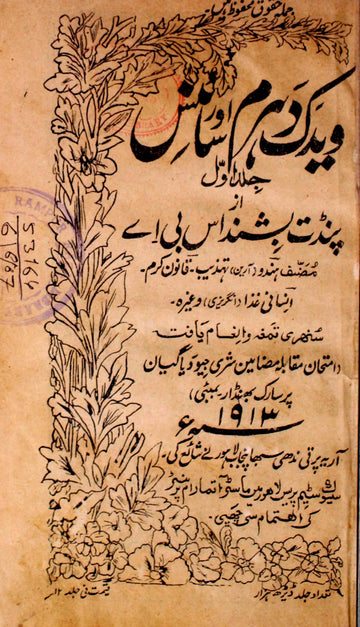 جملہ حقوق محفوظ ہیں
ویدک دھرم اور سائنس
جلد اوّل
از
پنڈت بشنداس بی اے
مُصنّف ہندو (آرین) تہذیب۔ قانون کرم۔
انسانی غذا (انگریزی) وغیرہ۔
سُنھری تمغہ و انعام یافتہ
(امتحان مقابلہ مضامین شری جیو دیا گیان
پرسارک بھنڈار بمبئی)
سنہ ۱۹۱۳ء
آریہ پرتی ندھی سبھا پنجاب لاہور نے شائع کی۔
سیوک سٹیم پریس لاہور میں ماسٹر آتمارام پرنٹر
کے اھتمام سے چھپی
تعداد جلد ڈیڑھ ہزار
قیمت فی جلد ۱۲
RAMPUR
53164
6/6/67